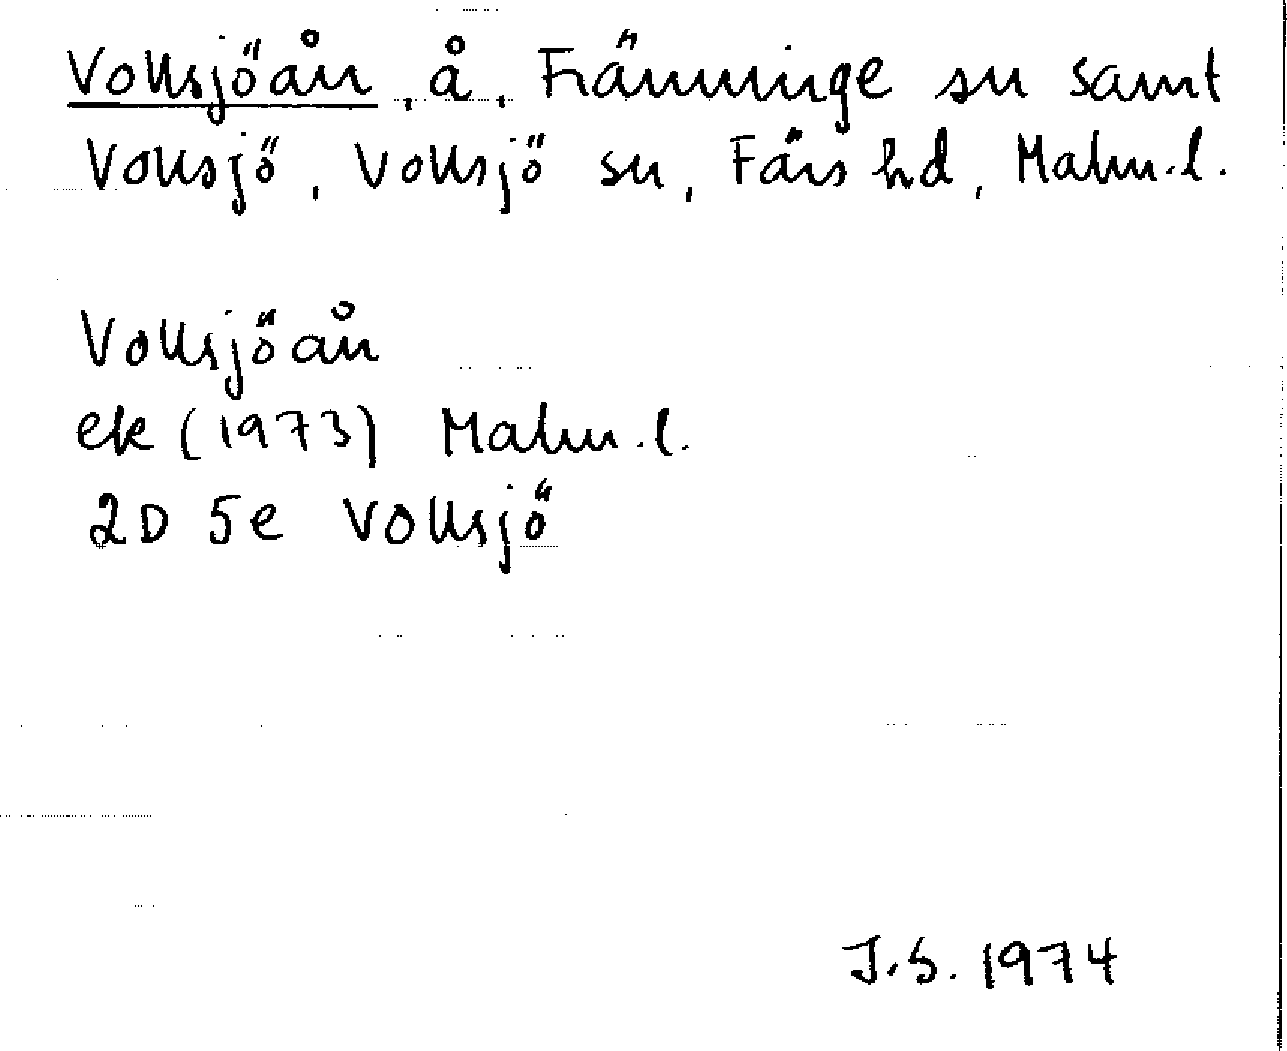 Vollsjöån, å, Fränninge sn samt
Vollsjö, Vollsjö sn, Färs hd, Malm.l.
Vollsjöån
ek (1973) Malm.l.
2D 5e Vollsjö
J.S. 1974